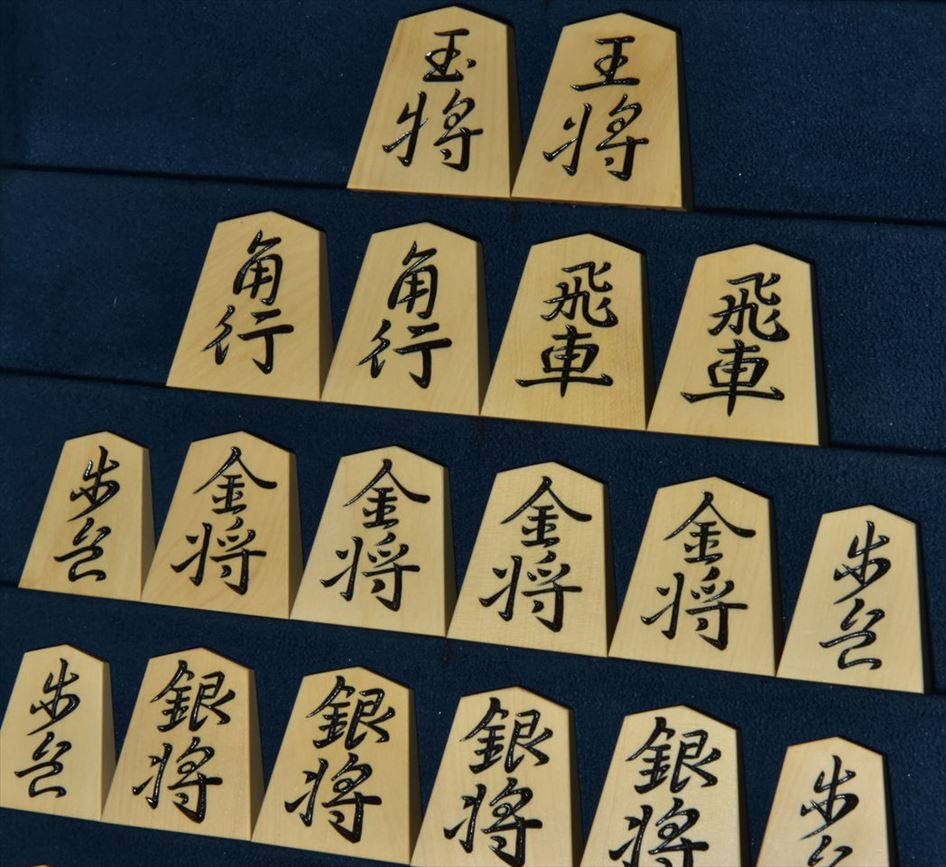 玉将
王将
角行
角行
飛車
飛車
歩兵
金将
金将
金将
金将
歩兵
歩兵
銀将
銀将
銀将
銀将
歩兵